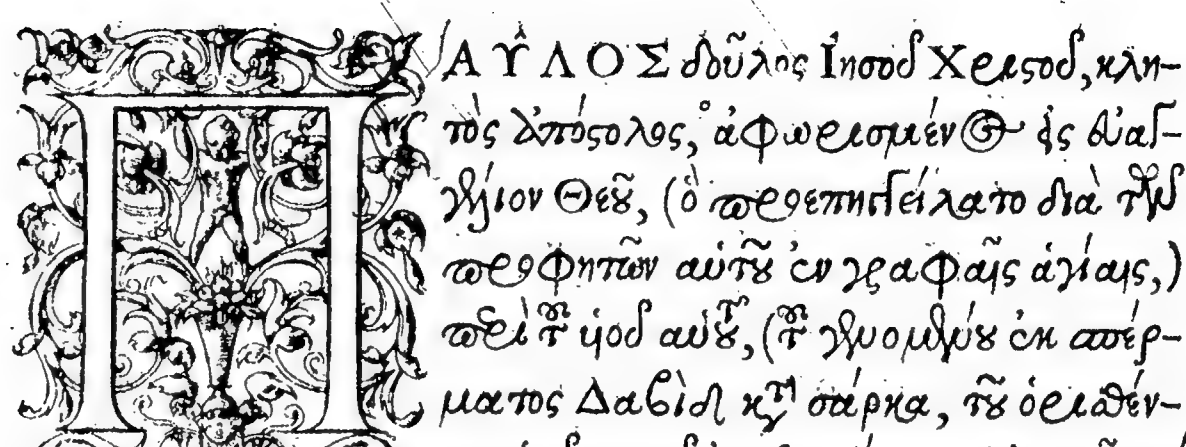 ΠΑΥ͂ΛΟΣ δοῦλος Ἰησοῦ Χριστοῦ, κλη-
τὸς ἀπόστολος, ἀφωρισμένος εἰς εὐαγ-
γέλιον Θεοῦ, (ὃ προεπηγγείλατο διὰ τῶν
προφητῶν αὐτοῦ ἐν γραφαῖς ἁγίαις,)
περὶ τοῦ υἱοῦ αὐτοῦ, (τοῦ γενομένου ἐκ σπέρ-
ματος Δαβὶδ κατὰ σάρκα, τοῦ ὁρισθέν-